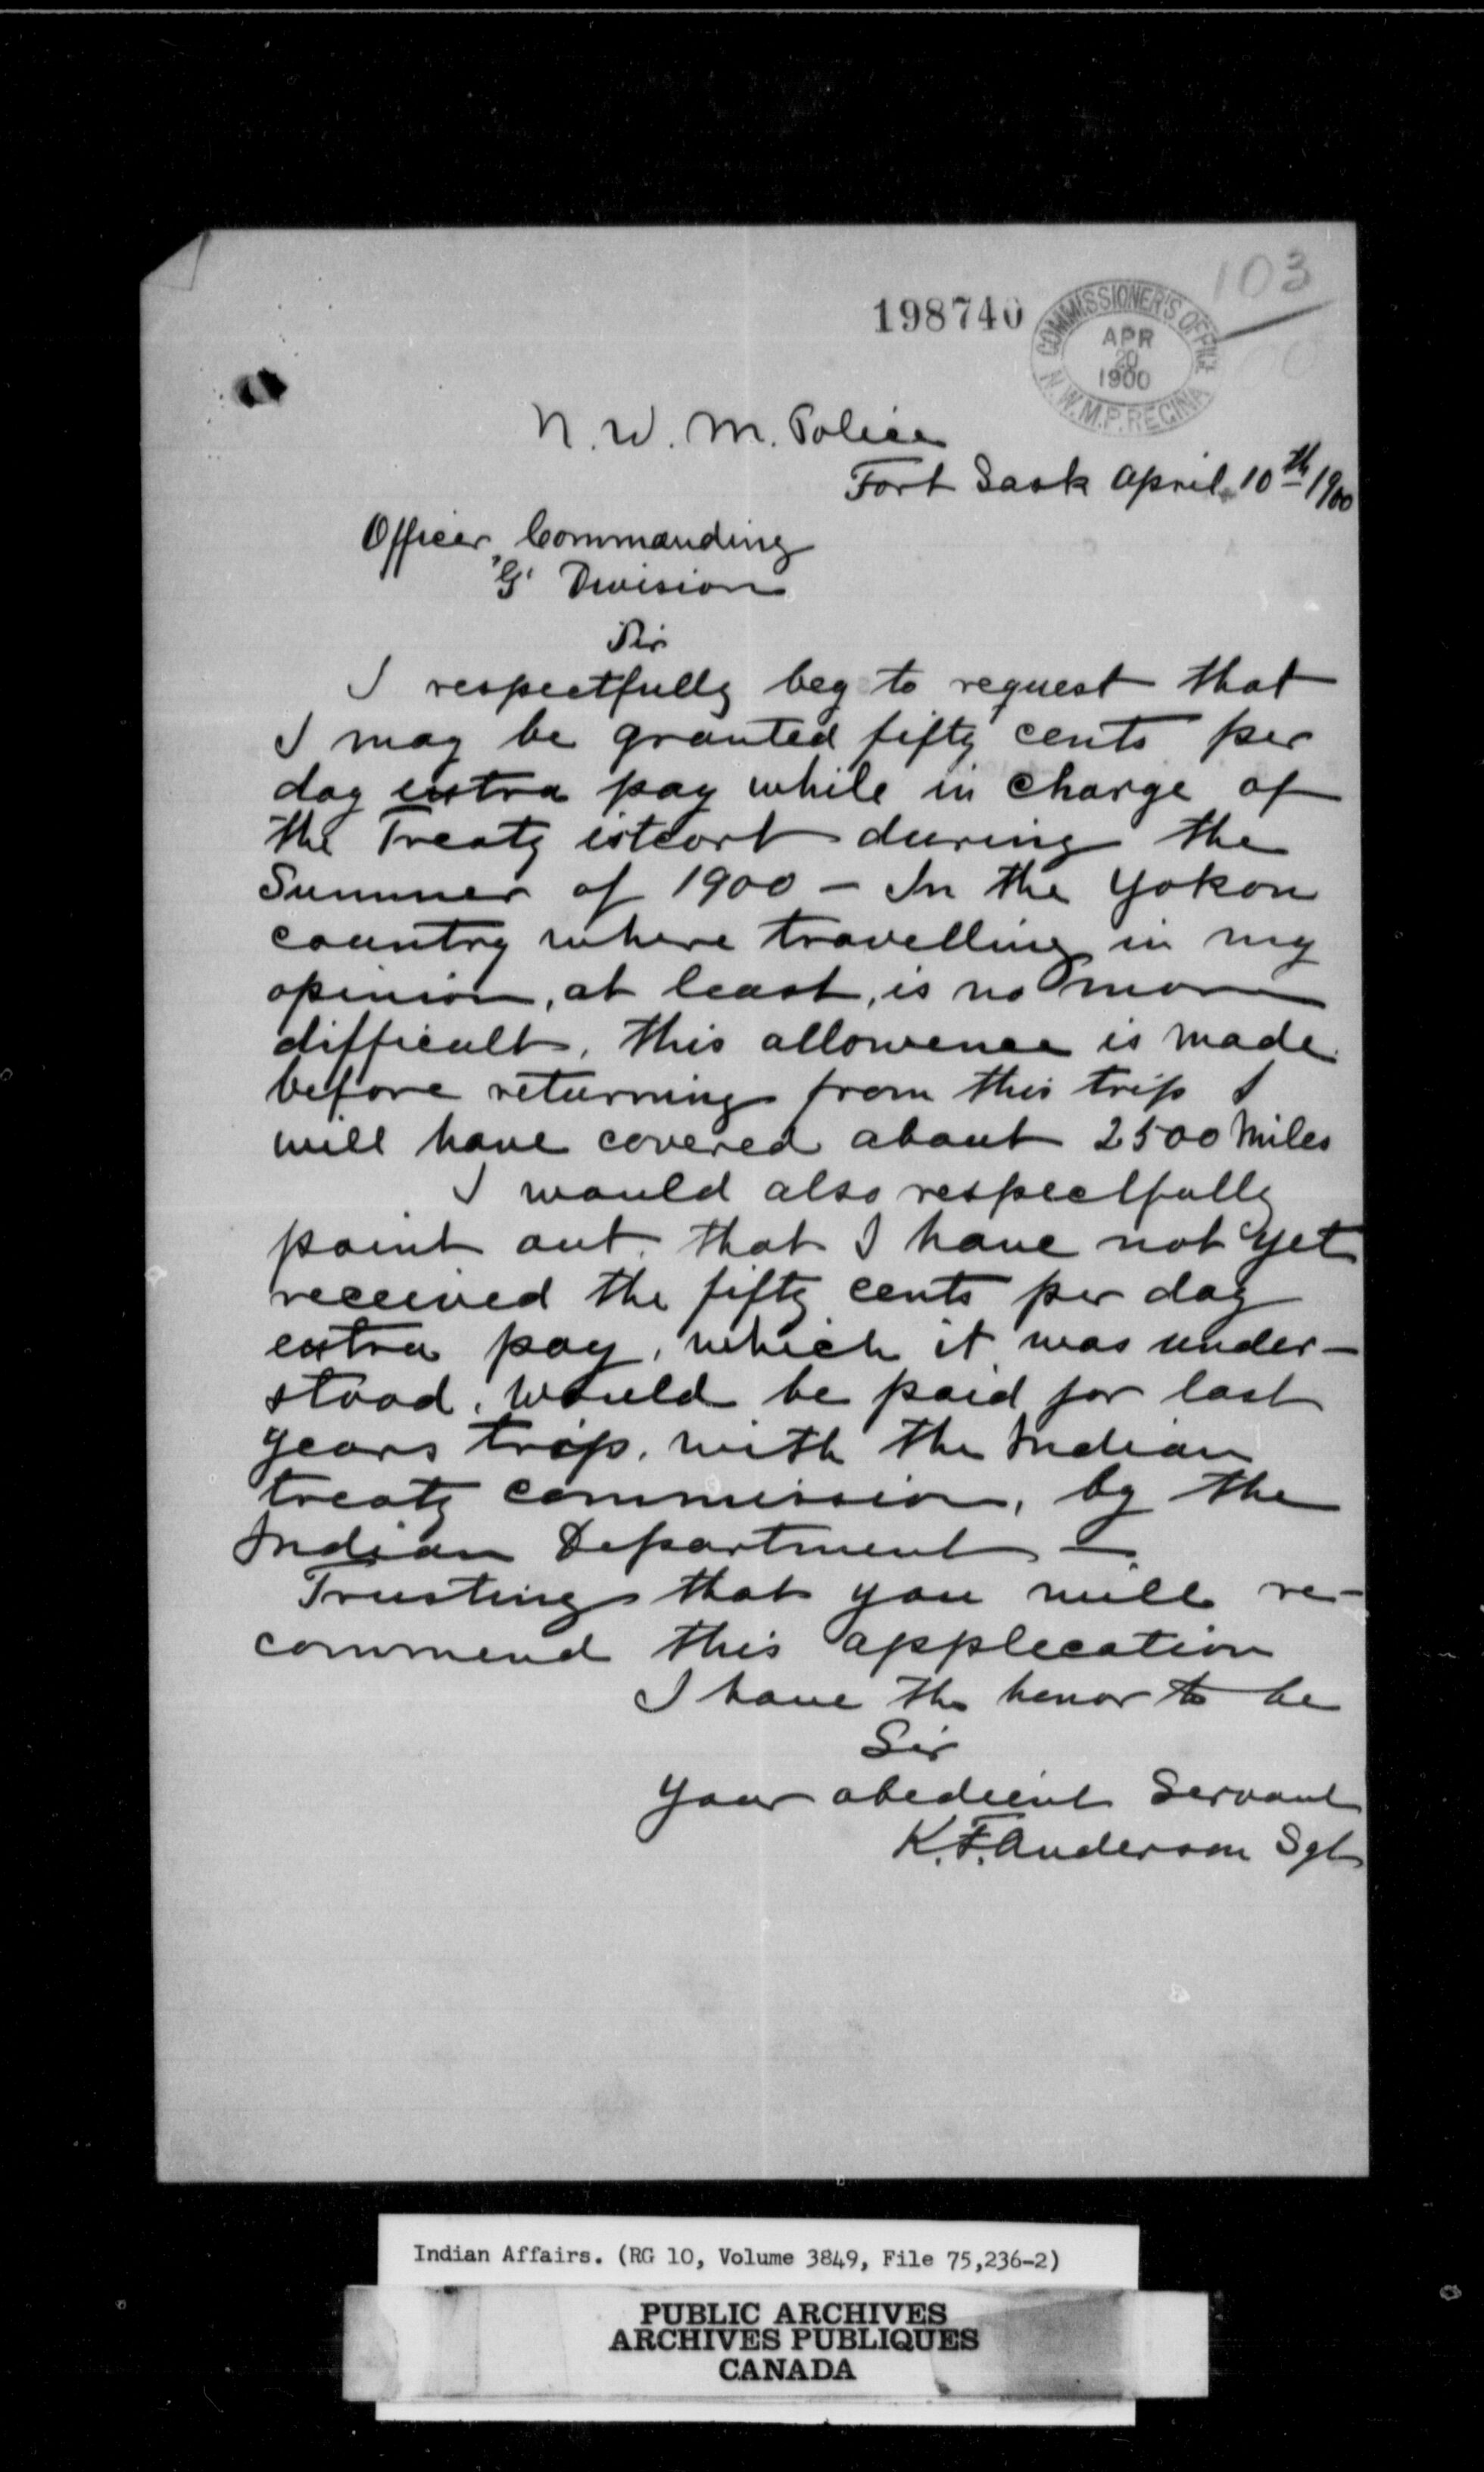 103
198740
COMMISSIONER'S OFFICE
APR
20
1900
N.W.M.P. REGINA
N. W. M. Police
Fort Sask April 10th 1900
Officer Commanding
'G' Division
Sir
I respectfully beg to request that
I may be granted fifty cents per
day extra pay while in charge of
the Treaty estcort during the
Summer of 1900 – In the Yokon
country where travelling in my
opinion, at least, is no more
difficult, this allowence is made
before returning from this trip I
will have covered about 2500 Miles
I would also respectfully
point out that I have not yet
received the fifty cents per day
extra pay, which it was under-
stood, would be paid for last
years trip, with the Indian
treaty commission, by the
Indian Department —
Trusting that you will re-
commend this application
I have the honor to be
Sir
Your obedient Servant
K. F. Anderson Sgt
Indian Affairs. (RG 10, Volume 3849, File 75,236-2)
PUBLIC ARCHIVES
ARCHIVES PUBLIQUES
CANADA